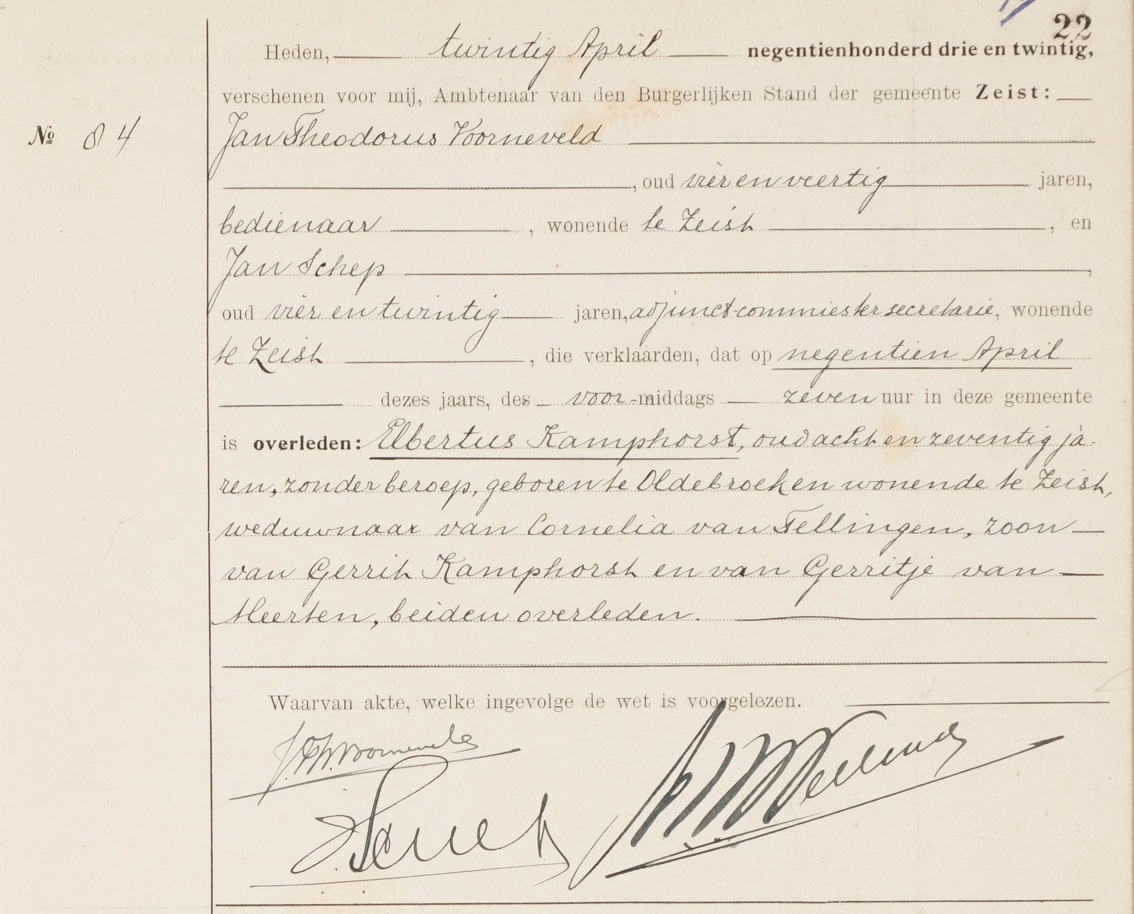 22
Heden, twintig April negentienhonderd drie en twintig,
verschenen voor mij, Ambtenaar van den Burgerlijken Stand der gemeente Zeist:
No 84 Jan Theodorus Voorneveld
, oud vier en veertig jaren,
bedienaar , wonende te Zeist , en
Jan Schep ,
oud vier en twintig jaren, adjunct-commies ter secretarie, wonende
te Zeist , die verklaarden, dat op negentien April
dezes jaars, des voor-middags zeven uur in deze gemeente
is overleden: Elbertus Kamphorst, oud acht en zeventig ja-
ren, zonder beroep, geboren te Oldebroek en wonende te Zeist,
weduwnaar van Cornelia van Tellingen, zoon
van Gerrit Kamphorst en van Gerritje van
Meerten, beiden overleden.
Waarvan akte, welke ingevolge de wet is voorgelezen.
J.Th. Voorneveld
J Schep